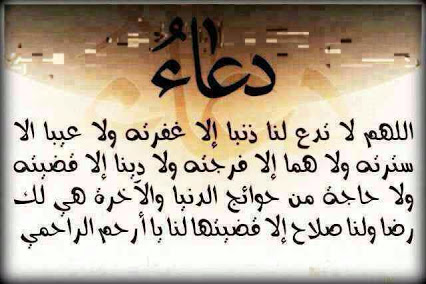 دعاءُ
اللهم لا تدع لنا ذنبا إلا غفرته ولا عيبا الا
سترته ولا هما إلا فرجته ولا دينا إلا قضيته
ولا حاجة من حوائج الدنيا والآخرة هي لك
رضا ولنا صلاح إلا قضيتها لنا يا أرحم الراحمي